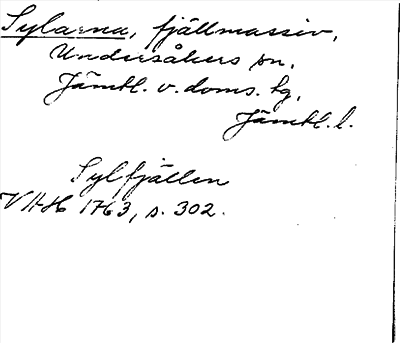 Sylarna, fjällmassiv,
Undersåkers sn,
Jämtl. v. doms. tg,
Jämtl. l.
Sylfjällen
VAH 1763, s. 302.